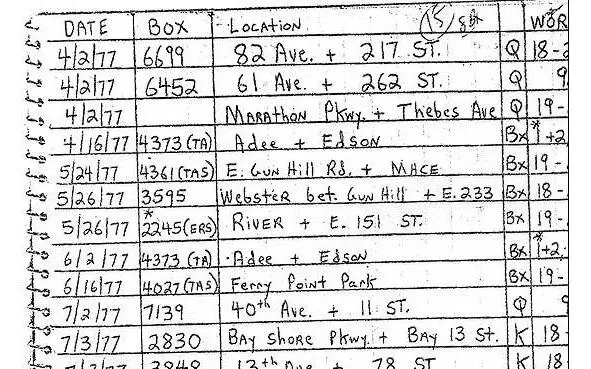 DATE BOX LOCATION 15/ WOR
4/2/77 6699 82 Ave. + 217 ST. Q 18-2
4/2/77 6452 61 Ave. + 262 ST. Q 9
4/2/77 MARAthoN PKwy. + Thebes Ave Q 19-
4/16/77 4373 (TA) Adee + EdsoN Bx *1+2
5/24/77 4361 (TAS) E. GUN Hill Rd. + MACE Bx 19-
5/26/77 3595 WebsteR bet. GUN Hill + E. 233 Bx 18-
5/26/77 *2245 (ERS) RIVER + E. 151 ST. Bx 19-
6/2/77 4373 (TA) Adee + EdsoN Bx *1+2
6/16/77 4027 (TAS) Ferry Point Park Bx 19-
7/2/77 7139 40th Ave. + 11 ST. Q 9
7/3/77 2830 BAy ShoRe Pkwy. + BAY 13 St. K 18-
13th Ave. + 78 ST. K 18